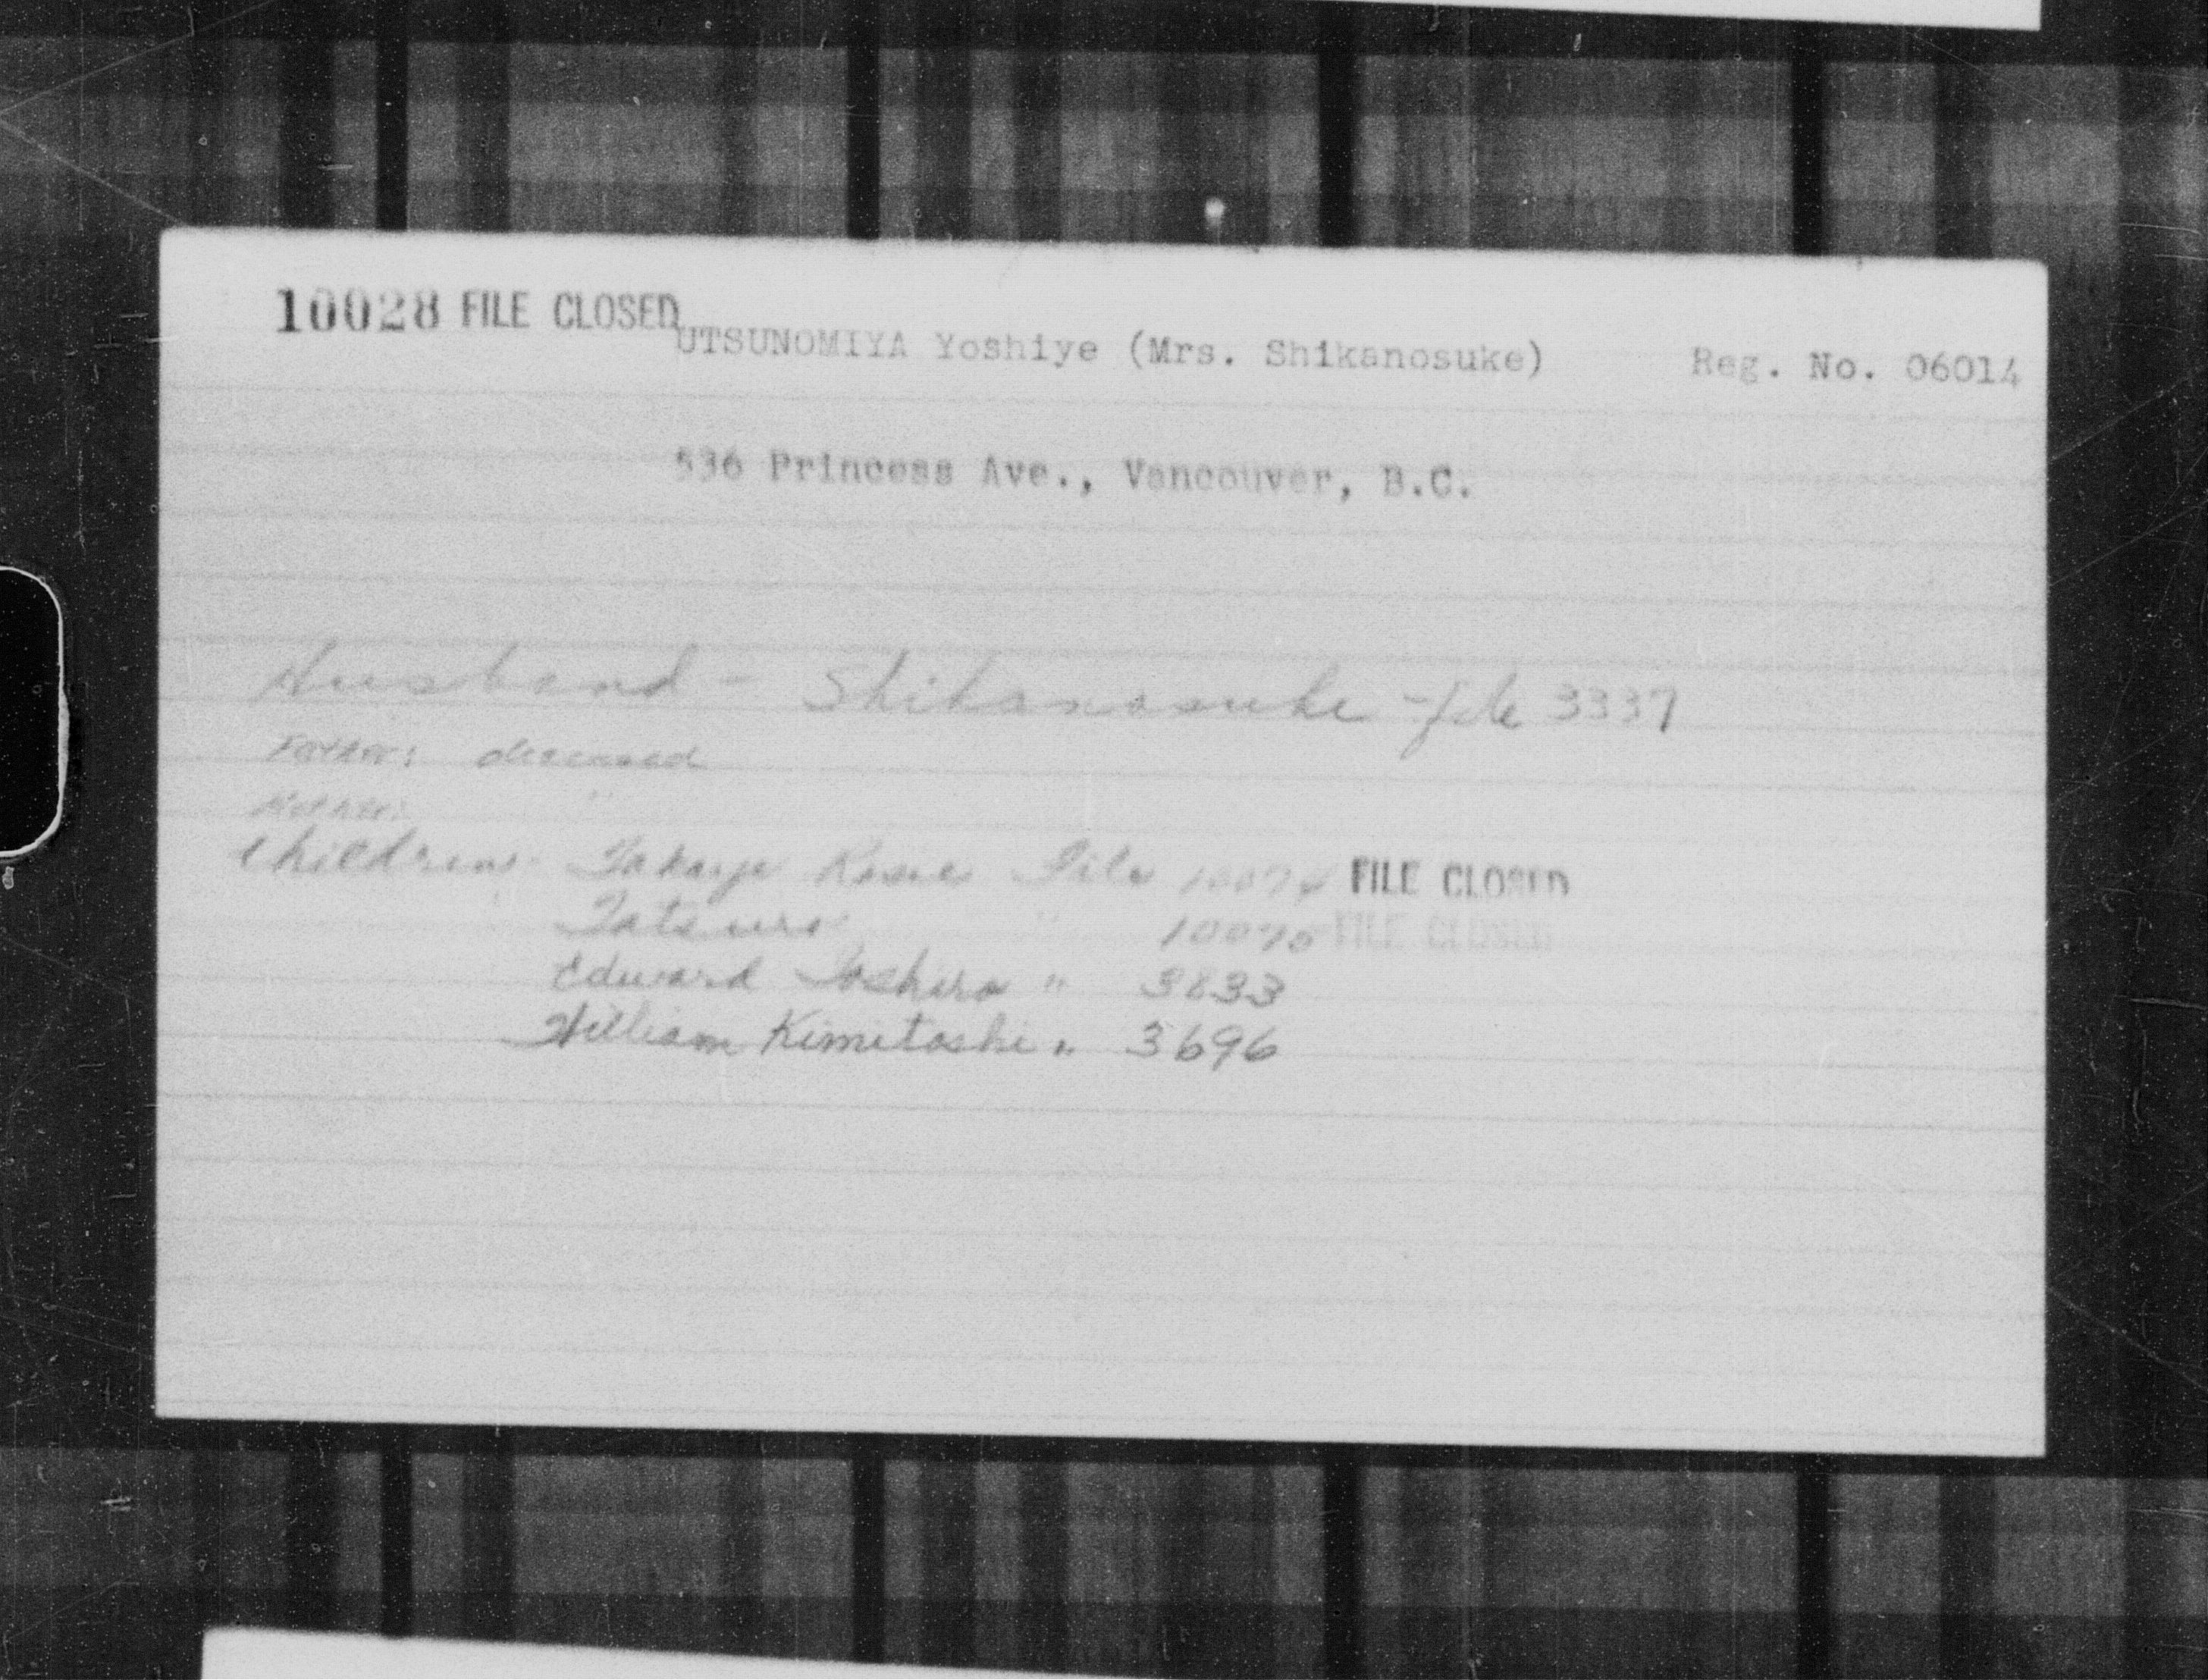 10028 FILE CLOSED
UTSUNOMIYA Yoshiye (Mrs. Shikanosuke) Reg. No. 06014
536 Princess Ave., Vancouver, B.C.
Husband - Shikanosuke - file 3337
Father: deceased
Mother: "
Children: Rosie File FILE CLOSED
Tatsuro " FILE CLOSED
Edward Toshiro " 3833
William Kimitoshi " 3696